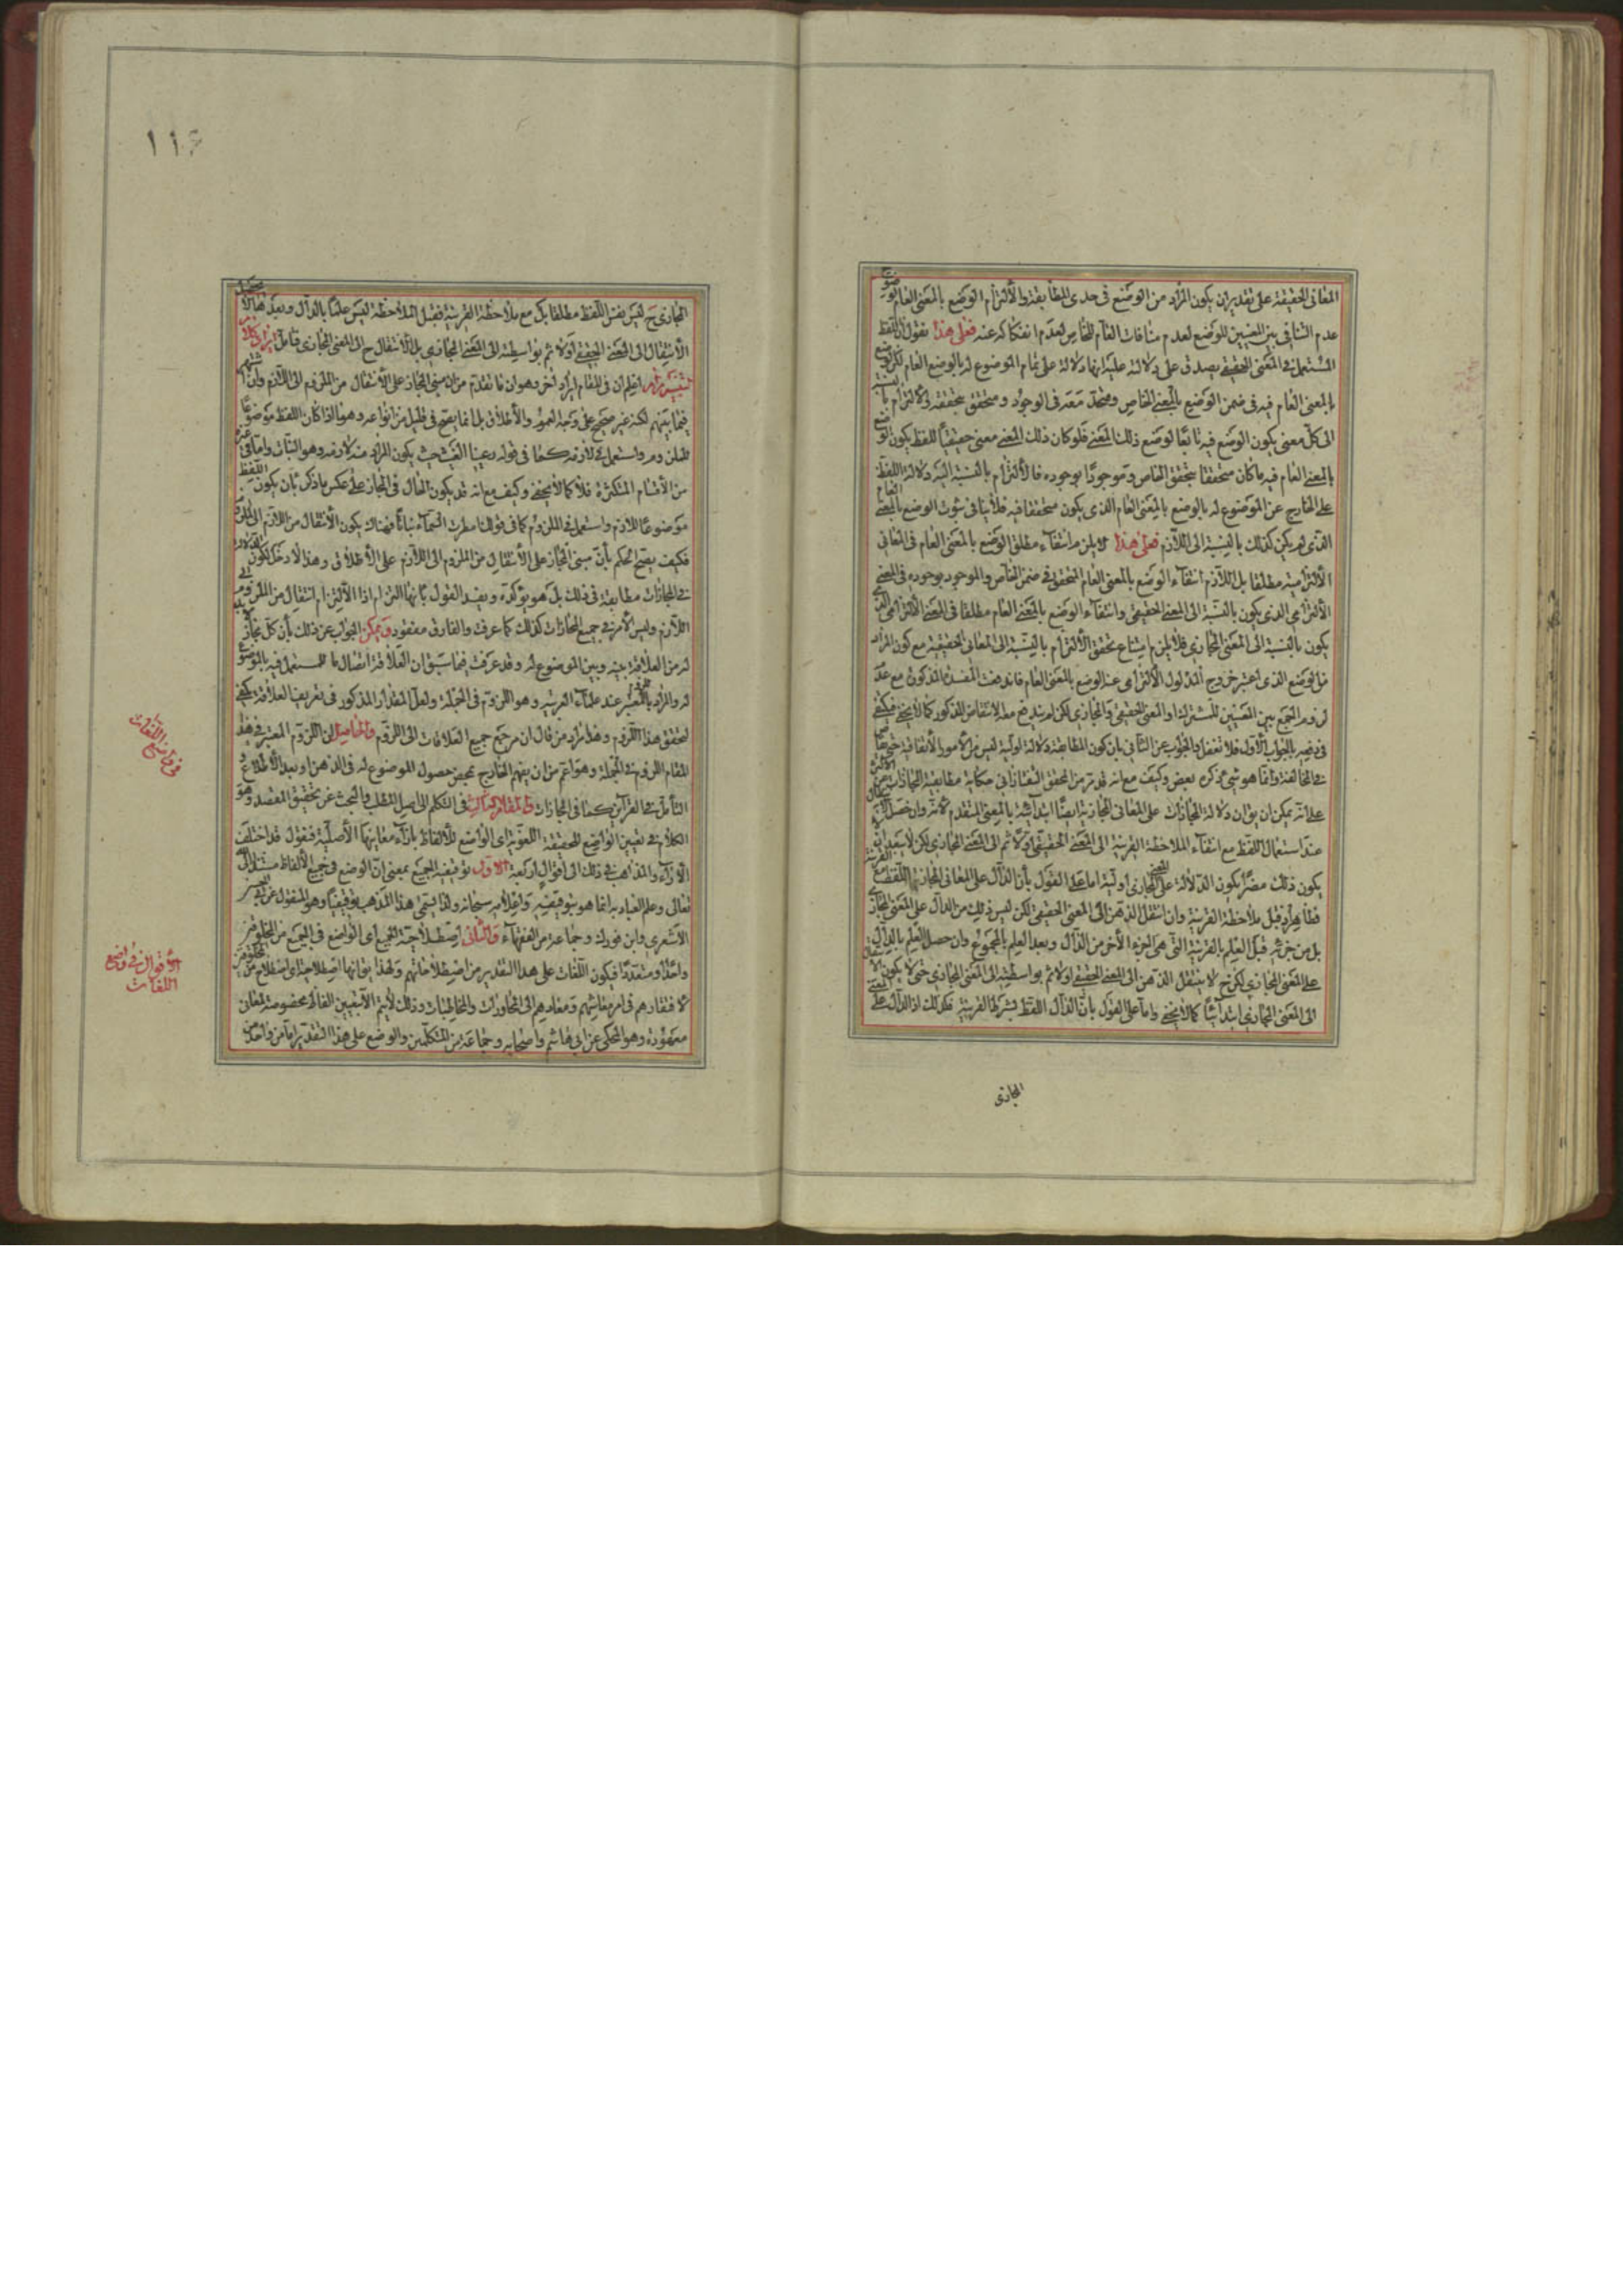 المعانى الحقيقية على تقديران يكون المراد من الوضع فى حدى المطابقة والالتزام الوضع بالمعنى العام لوضوح
عدم التنافى بين المعنيين للوضع لعدم منافات العام للخاص لعدم انفكاكه عنه فعلى هذا نقول ان اللفظ
المستعمل فى المعنى الحقيقى يصدق على دلالته عليه انها دلالة على تمام الموضوع له بالوضع العام لكن الوضع
بالمعنى العام فيه فى ضمن الوضع بالمعنى الخاص ومتحد معه فى الوجود ومتحقق بتحققه والالتزام بالنسبة
الى كل معنى يكون الوضع فيه تابعا لوضع ذلك المعنى فلو كان ذلك المعنى معنى حقيقيا للفظ يكون الوضع
بالمعنى العام فيه ما كان متحققا بتحقق الخاص وموجودا بوجوده فالالتزام بالنسبة اليه دلالة اللفظ
على الخارج عن الموضوع له بالوضع بالمعنى العام الذى يكون متحققا فيه فلا ينافى ثبوت الوضع بالمعنى العام
الذى لم يكن كذلك بالنسبة الى اللازم فعلى هذا لا يلزم انتفاء مطلق الوضع بالمعنى العام فى المعانى
الالتزامية مطلقا بل اللازم انتفاء الوضع بالمعنى العام المتحقق فى ضمن الخاص والموجود بوجوده فى المعنى
الالتزامى الذى يكون بالنسبة الى المعنى الحقيقى وانتفاء الوضع بالمعنى العام مطلقا فى المعنى الالتزامى الذى
يكون بالنسبة الى المعنى المجازى فلا يلزم امتناع تحقق الالتزام بالنسبة الى المعانى الحقيقية مع كون المراد
من الوضع الذى اعتبر خروج المدلول الالتزامى عنه الوضع بالمعنى العام فاندفعت المفسدة المذكورة مع عدم
لزوم الجمع بين المعنيين للمشترك او المعنى الحقيقى والمجازى لكن لم يندفع معه الانتقاض المذكور كما لا يخفى فيكتفى
فى دفعه بالجواب الاول فلا تغفل والجواب عن الثانى بان كون المطابقة دلالة اولية ليس من الامور الاتفاقية حتى يضر
المخالفة وانما هو شئ ذكره بعض وكيف مع انه قد مر من المحقق التفتازانى حكاية مطابقية المجازات عن الاكثر
على انه يمكن ان يق ان دلالة المجازات على المعانى المجازية ايضا ابتدائية بالمعنى المتقدم لانه وان حصل
عند استعمال اللفظ مع انتفاء الملاحظة القرينة الى المعنى الحقيقى اولا ثم الى المعنى المجازى لكن لا
يكون ذلك مضرا بكون الدلالة على المعنى المجازى اولية اما على القول بان الدال على المعانى المجازية اللفظ مع القرينة
فظاهر اذ قبل ملاحظة القرينة وان انتقل الذهن الى المعنى الحقيقى لكن ليس ذلك من الدال على المعنى المجازى
بل من جزئه قبل العلم بالقرينة التى هى الجزء الاخر من الدال وبعد العلم بالمجموع وان حصل العلم بالدال
على المعنى المجازى لكن ح لا ينتقل الذهن الى المعنى الحقيقى اولا ثم بواسطته الى المعنى المجازى حتى لا يكون الانتقال
الى المعنى المجازى ابتدائيا كما لا يخفى واما على القول بان الدال اللفظ بشرط القرينة فكذلك اذ الدال على المعنى
المجازى
١١٤
المجازى ح ليس نفس اللفظ مطلقا بل مع ملاحظة القرينة فقبل الملاحظة ليس علما بالدال وبعدها لا يحصل
الانتقال الى المعنى الحقيقى اولا ثم بواسطته الى المعنى المجازى بل الانتقال ح الى المعنى المجازى فتامل
اعلم ان فى المقام ايراد اخر وهو ان ما تقدم من ان مبنى المجاز على الانتقال من الملزوم الى اللازم وان اشتهر
فيما بينهم لكنه غير صحيح على وجه العموم والاطلاق بل انما يصح فى قليل من انواعه وهو ما اذا كان اللفظ موضوعا
للملزوم واستعمل فى لازمه كما فى قوله رعينا الغيث حيث يكون المراد منه لازمه وهو النبات واما فى غيره
من الاقسام المتكثرة فلا كما لا يخفى وكيف مع انه قد يكون الحال فى المجاز على عكس ما ذكر بان يكون اللفظ
موضوعا للازم واستعمل فى الملزوم كما فى قولنا مطرت السماء نباتا فهناك يكون الانتقال من اللازم الى الملزوم
فكيف يصح الحكم بان مبنى المجاز على الانتقال من الملزوم الى اللازم على الاطلاق وهذا لا دخل لكون
فى المجازات مطابقة فى ذلك بل هو يؤكده ويفيد القول بانها التزام اذ الالتزام انتقال من الملزوم الى
اللازم وليس الامر فى جميع المجازات كذلك كما عرفت والفارق مفقود ويمكن الجواب عن ذلك بان كل مجاز لا بد
له من العلاقة بينه وبين الموضوع له وقد عرفت فيما سبق ان العلاقة اتصال ما للمستعمل فيه بالموضوع
له والمراد باللزوم المعتبر عند علماء العربية وهو اللزوم فى الجملة ولعل المقدار المذكور فى تعريف العلاقة يكفى
لتحقق هذا اللزوم وهذا مراد من قال ان مرجع جميع العلاقات الى اللزوم والحاصل ان اللزوم المعتبر فى هذا
المقام اللزوم فى الجملة وهو اعم من ان يفهم الخارج بمحض حصول الموضوع له فى الذهن او بعد الاطلاع و
التامل فى القرائن كما فى المجازات والمقام الثالث فى التكلم الى اصل المطلب والبحث عن تحقيق المقصد وهو
الكلام فى تعيين الواضع للحقيقة اللغوية اى الواضع للالفاظ بازاء معانيها الاصلية فنقول قد اختلف
الاراء والمذاهب فى ذلك الى اقوال اربعة الاول توقيفية الجميع بمعنى ان الوضع فى جميع الالفاظ مستند الى الله
تعالى وعلم العباد به انما هو بتوقيفه واعلامه سبحانه ولذا يسمى هذا المذهب توقيفيا وهو المنقول عن ابى الحسن
الاشعرى وابن فورك وجماعة من الفقهاء والثانى اصطلاحية الجميع اى الواضع فى الجميع من المخلوقين
واحدا او متعددا فيكون اللغات على هذا التقدير من اصطلاحاتهم ولهذا يق انها اصطلاحية اى اصطلاح من المخلوقين
لافتقارهم فى امر معاشهم ومعادهم الى المحاورات والمخاطبات وذلك لا يتم الا بتعيين الفاظ مخصوصة لمعان
معهودة وهو المحكى عن ابى هاشم واصحابه وجماعة من المتكلمين والوضع على هذا التقدير اما من واحد
فى واضع اللغات
الاقوال فى واضع
اللغات